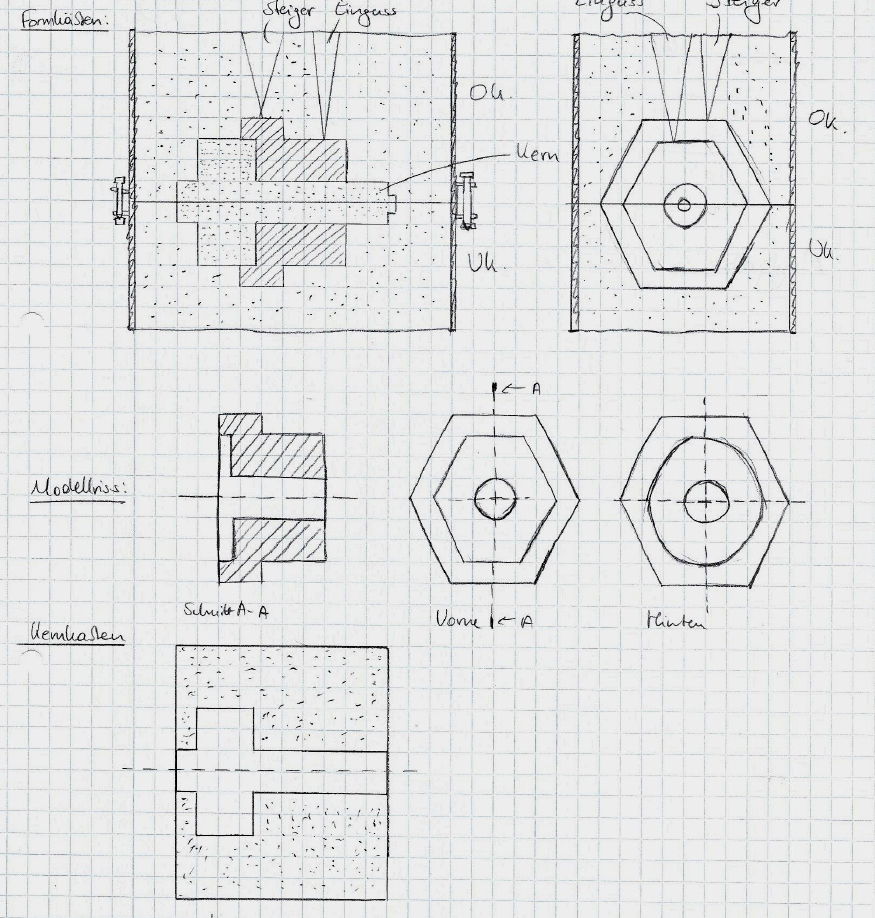 Formkästen:
Steiger Einguss
Einguss Steiger
OK.
OK.
Kern
UK.
UK.
← A
Modellriss:
Schnitt A-A
Vorne ← A
Hinten
Kernkasten